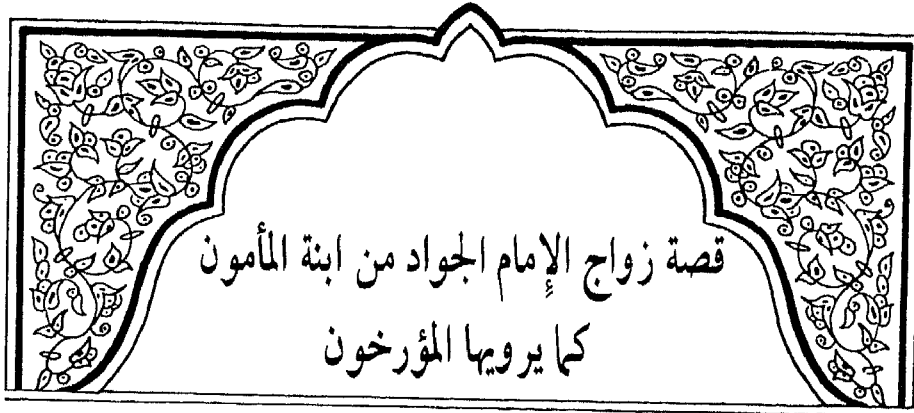 قصة زواج الإمام الجواد من ابنة المأمون
كما يرويها المؤرخون